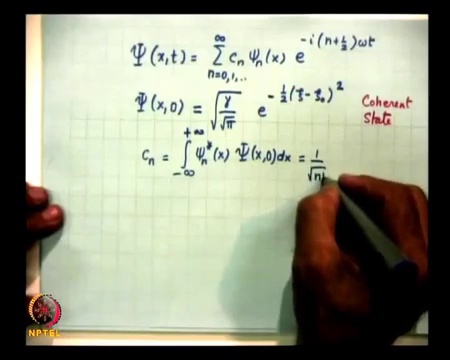 Ψ(x,t) = ∑_{n=0,1,..}^{∞} c_n ψ_n(x) e^{-i(n+1/2)ωt}
Ψ(x,0) = √(γ/√π) e^{-1/2(ξ-ξ_0)^2} Coherent State
c_n = ∫_{-∞}^{+∞} ψ_n^*(x) Ψ(x,0)dx = 1/√n!
NPTEL